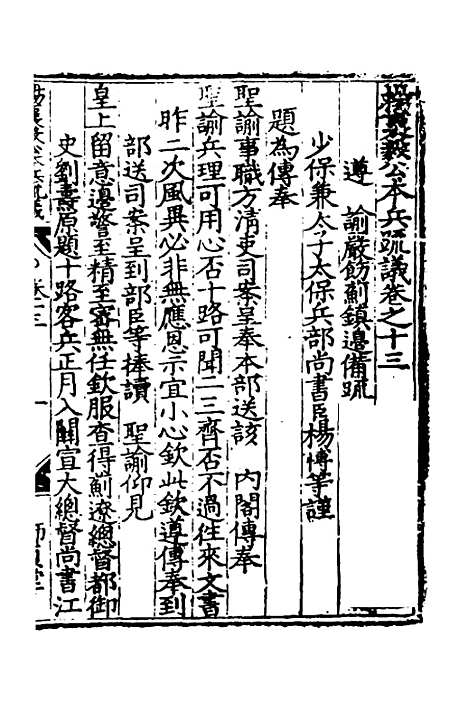 楊襄毅公本兵疏議卷之十三
遵　諭嚴飭薊鎮邊備疏
少保兼太子太保兵部尚書臣楊博等謹
題為傳奉
聖諭事職方清吏司案呈奉本部送該　內閣傳奉
聖諭兵理可用心否十路可聞二三齊否不過往來文書
昨二次風異必非無應恩示宜小心欽此欽遵傳奉到
部送司案呈到部臣等捧讀　聖諭仰見
皇上留意邊警至精至密無任欽服查得薊遼總督都御
史劉燾原題十路客兵正月入關宣大總督尚書江